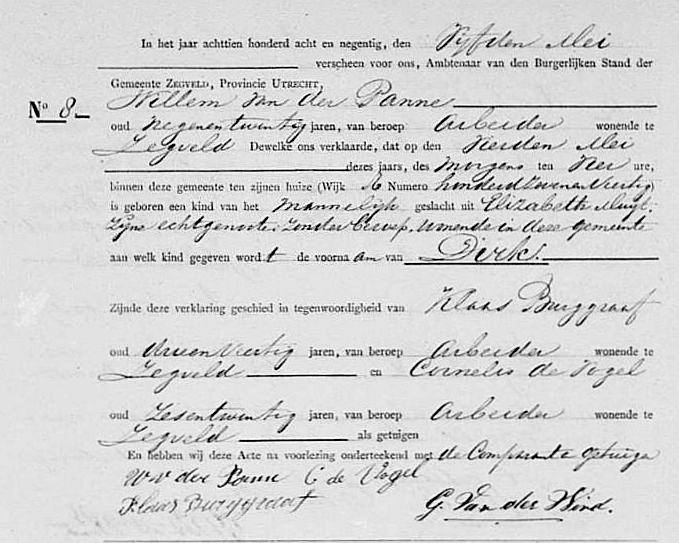 In het jaar achttien honderd acht en negentig, den Vijfden Mei
verscheen voor ons, Ambtenaar van den Burgerlijken Stand der
Gemeente ZEGVELD, Provincie UTRECHT,
Willem van der Panne
No 8
oud negenentwintig jaren, van beroep Arbeider wonende te
Zegveld Dewelke ons verklaarde, dat op den Vierden Mei
dezes jaars, des morgens ten vier ure,
binnen deze gemeente ten zijnen huize (Wijk Numero honderdzevenenveertig)
is geboren een kind van het mannelijk geslacht uit Elizabeth
zijne echtgenoote. Zonder beroep. wonende in deze gemeente
aan welk kind gegeven wordt de voornaam van Dirk.
Zijnde deze verklaring geschied in tegenwoordigheid van Klaas Burggraaf
oud drieenveertig jaren, van beroep Arbeider wonende te
Zegveld en Cornelis de Vogel
oud zesentwintig jaren, van beroep Arbeider wonende te
Zegveld als getuigen
En hebben wij deze Acte na voorlezing onderteekend met de Comparante getuige
W v der Panne C de Vogel
Klaas Burggraaf G. Van der Wind.